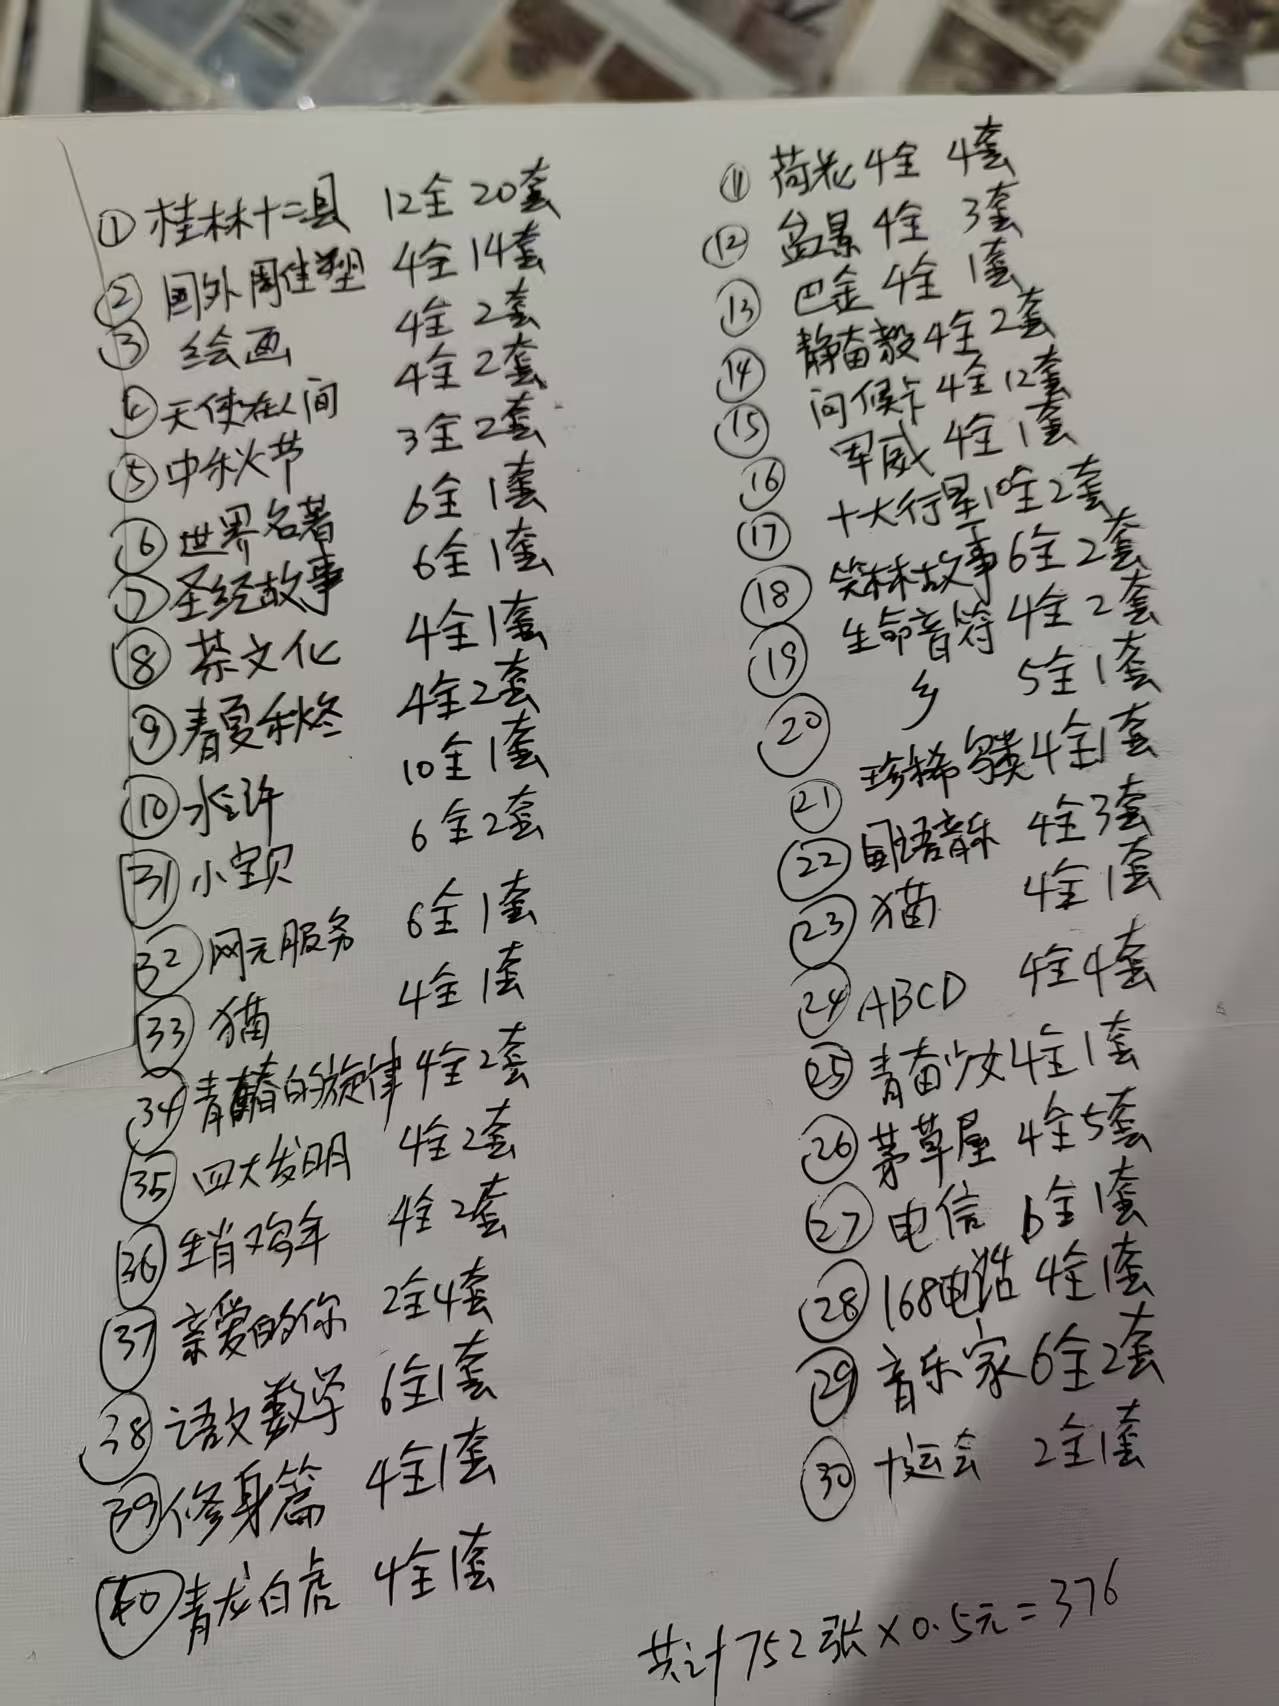 ① 桂林十二县 12全 20套
② 国外周佳塑 4全 14套
③ 绘画 4全 2套
④ 天使在人间 4全 2套
⑤ 中秋节 3全 2套
⑥ 世界名著 6全 1套
⑦ 圣经故事 6全 1套
⑧ 茶文化 4全 1套
⑨ 春夏秋冬 4全 2套
⑩ 水浒 10全 1套
㉛ 小宝贝 6全 2套
㉜ 网元服务 6全 1套
㉝ 猫 4全 1套
㉞ 青春的旋律 4全 2套
㉟ 四大发明 4全 2套
㊱ 生肖鸡年 4全 2套
㊲ 亲爱的你 2全 4套
㊳ 语文数学 6全 1套
㊴ 修身篇 4全 1套
㊵ 青龙白虎 4全 1套
⑪ 荷花 4全 4套
⑫ 盆景 4全 3套
⑬ 巴金 4全 1套
⑭ 静 4全 2套
⑮ 问候卡 4全 12套
⑯ 军威 4全 1套
⑰ 十大行星 10全 2套
⑱ 笑林故事 6全 2套
⑲ 生命音符 4全 2套
⑳ 乡 5全 1套
㉑ 珍稀鸟类 4全 1套
㉒ 国语音乐 4全 3套
㉓ 猫 4全 1套
㉔ ABCD 4全 4套
㉕ 青春少女 4全 1套
㉖ 茅草屋 4全 5套
㉗ 电信 6全 1套
㉘ 168电话 4全 1套
㉙ 音乐家 6全 2套
㉚ 十运会 2全 1套
共计752张×0.5元=376